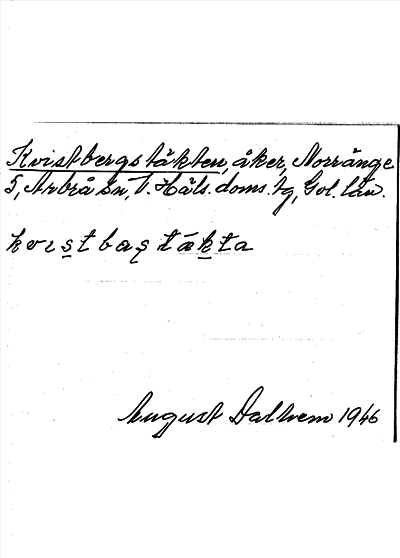 Kvistbergstäkten, åker, Norränge
5, Arbrå sn, V. Häls. doms. tg, Gvl. län.
kvıstbaştäkta
August Dalhem 1946